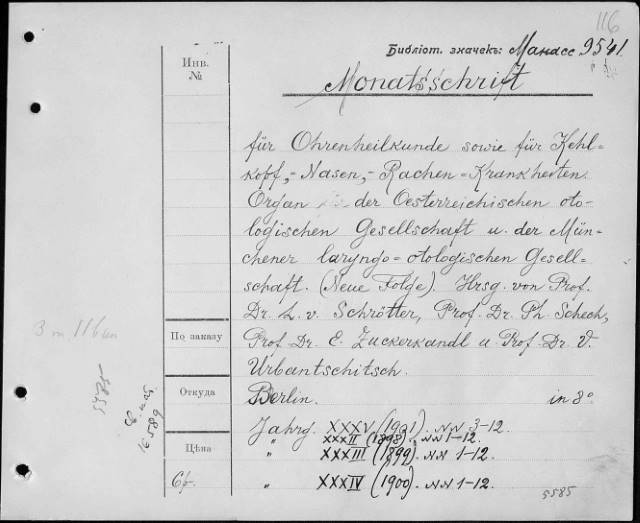 116
Библіот. значекъ: Манасс 9541.
Инв.
№
Monatsschrift
für Ohrenheilkunde sowie für Kehl=
kopf,- Nasen,- Rachen=Krankheiten.
Organ der Oesterreichischen oto-
logischen Gesellschaft u. der Mün-
chener laryngo=otologischen Gesell-
schaft. (Neue Folge). Hrsg. von Prof.
Dr. L. v. Schrötter, Prof. Dr. Ph. Schech,
Prof. Dr. E. Zuckerkandl u. Prof. Dr. V.
Urbantschitsch.
По заказу
Откуда
Цѣна
Berlin. in 8°
Jahrg. XXXV (1901). NN 3-12.
" XXXII (1898). NN 1-12.
" XXXIII (1899). NN 1-12.
" XXXIV (1900). NN 1-12.
5585